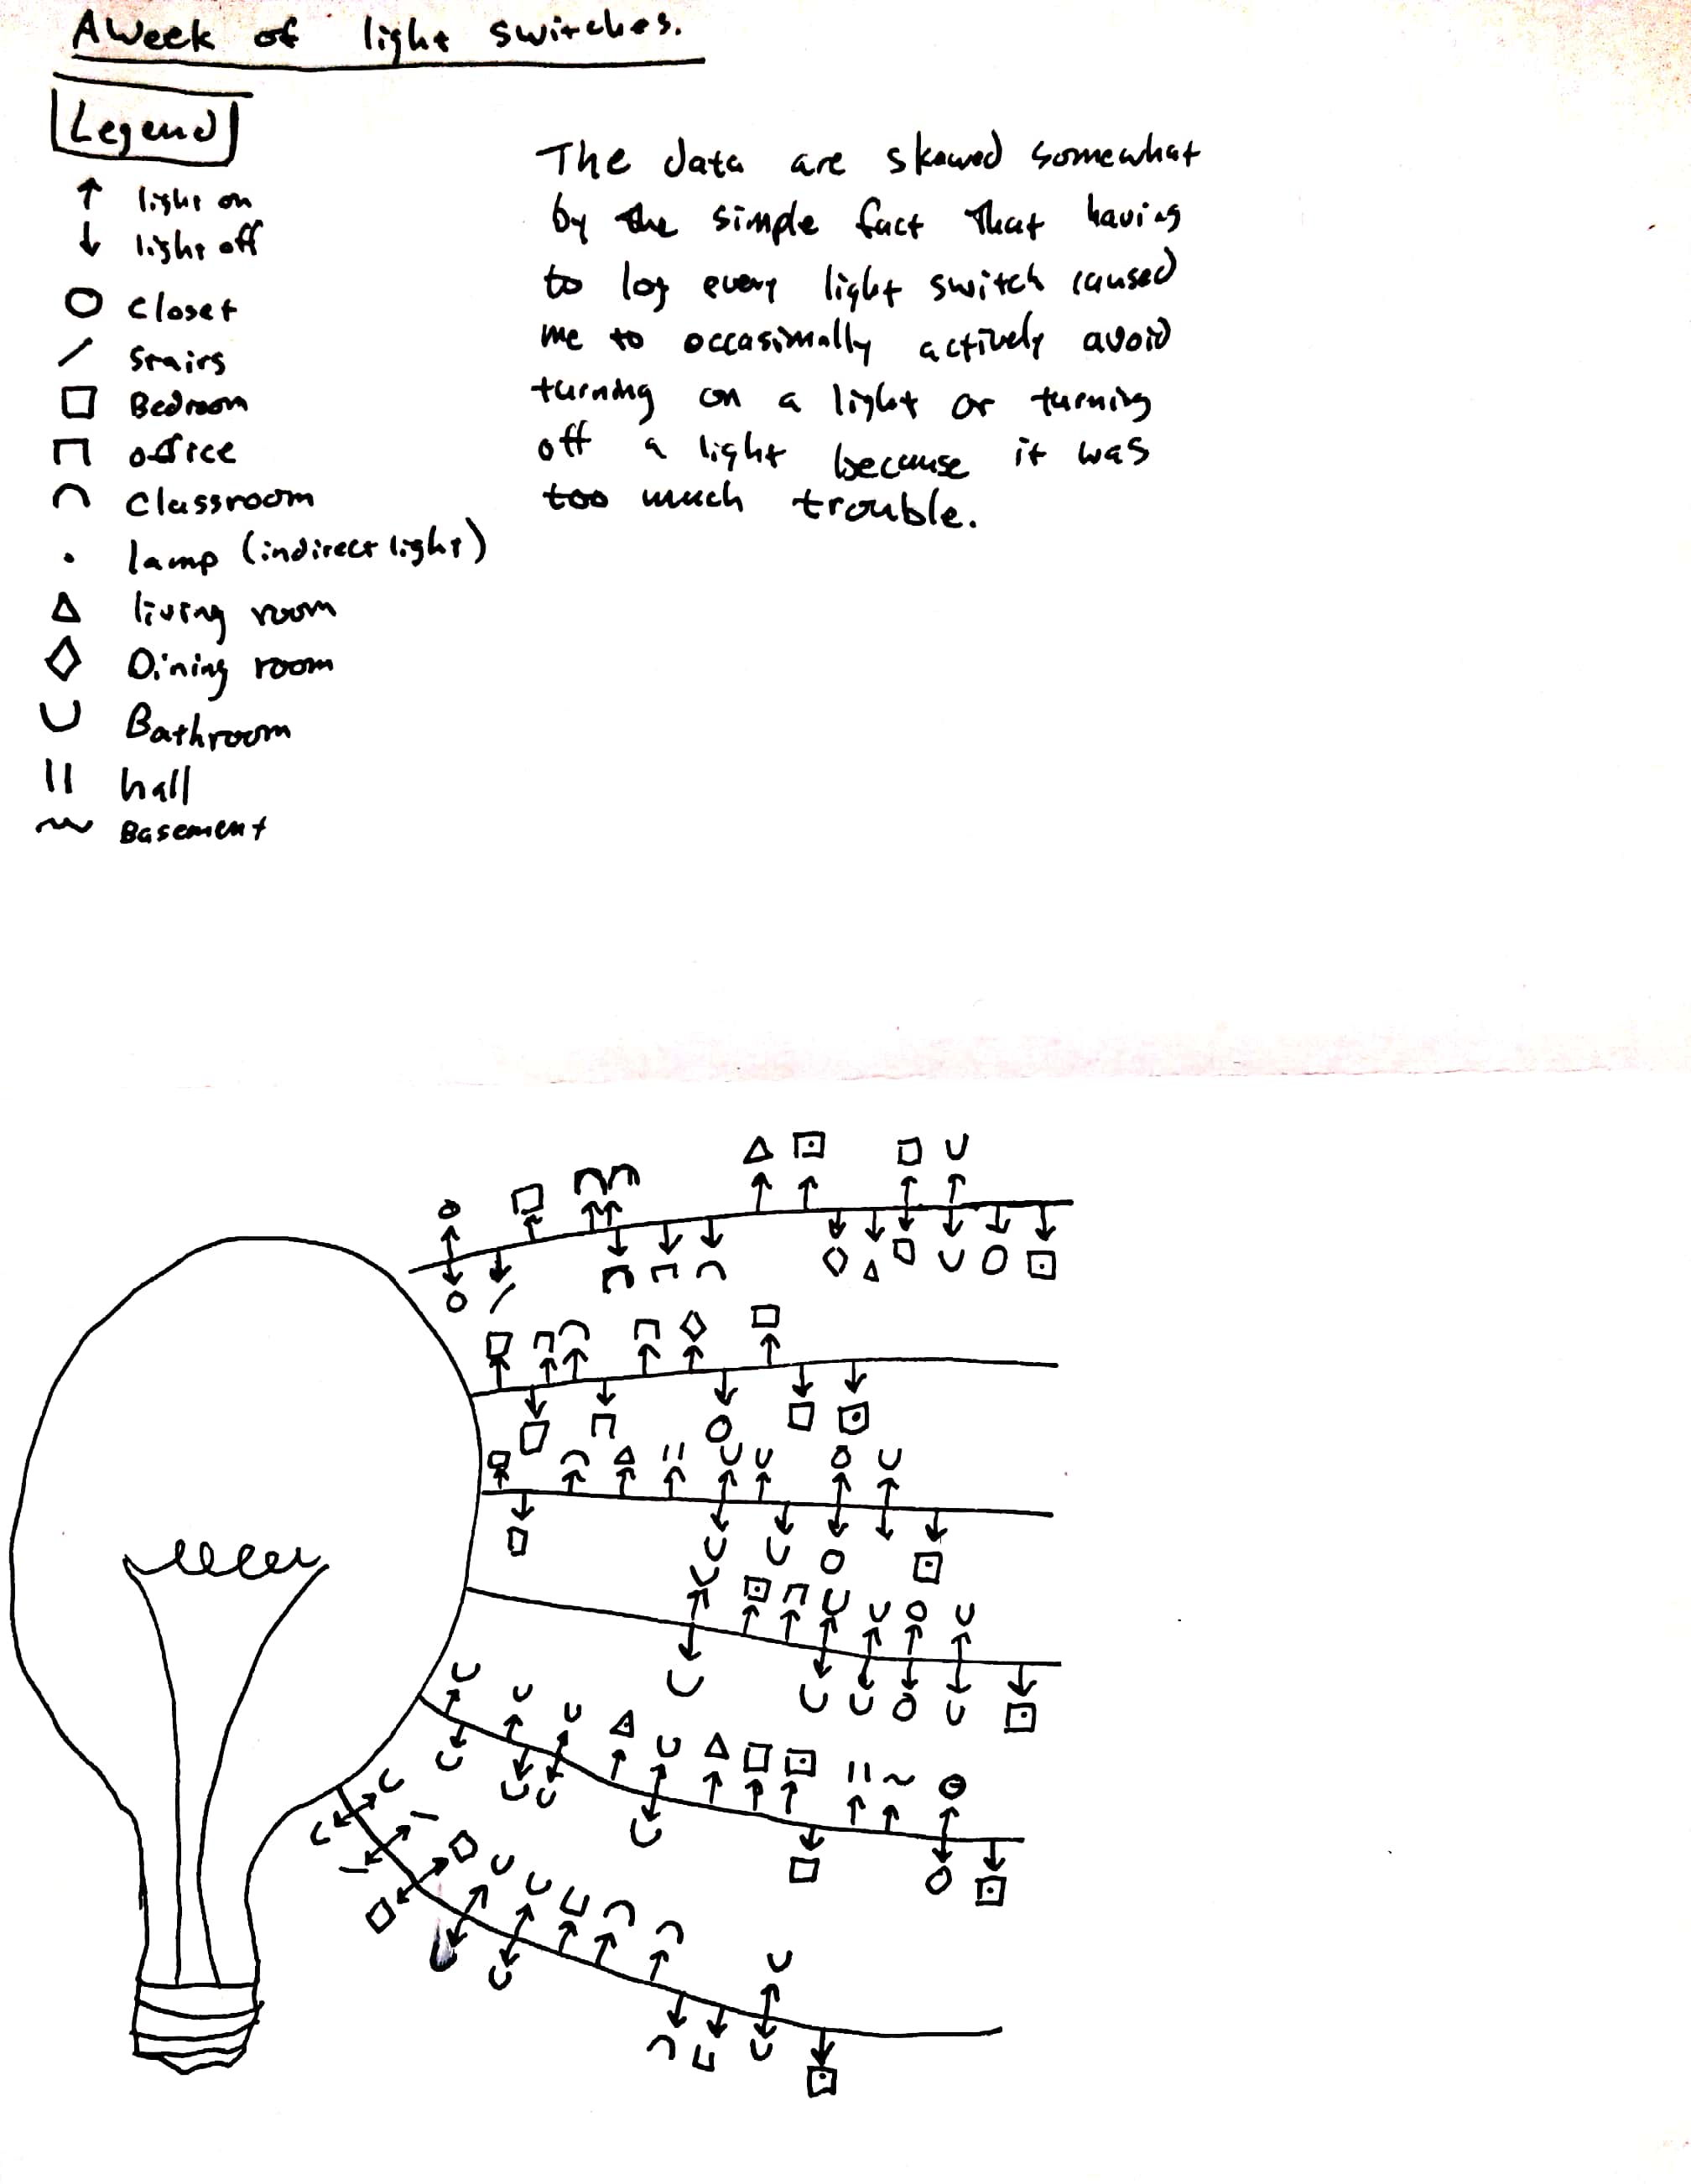 A Week of light switches.
Legend
light on
light off
Closet
Stairs
Bedroom
office
Classroom
lamp (indirect light)
living room
Dining room
Bathroom
hall
Basement
The data are skewed somewhat
by the simple fact that having
to log every light switch caused
me to occasionally actively avoid
turning on a light or turning
off a light because it was
too much trouble.